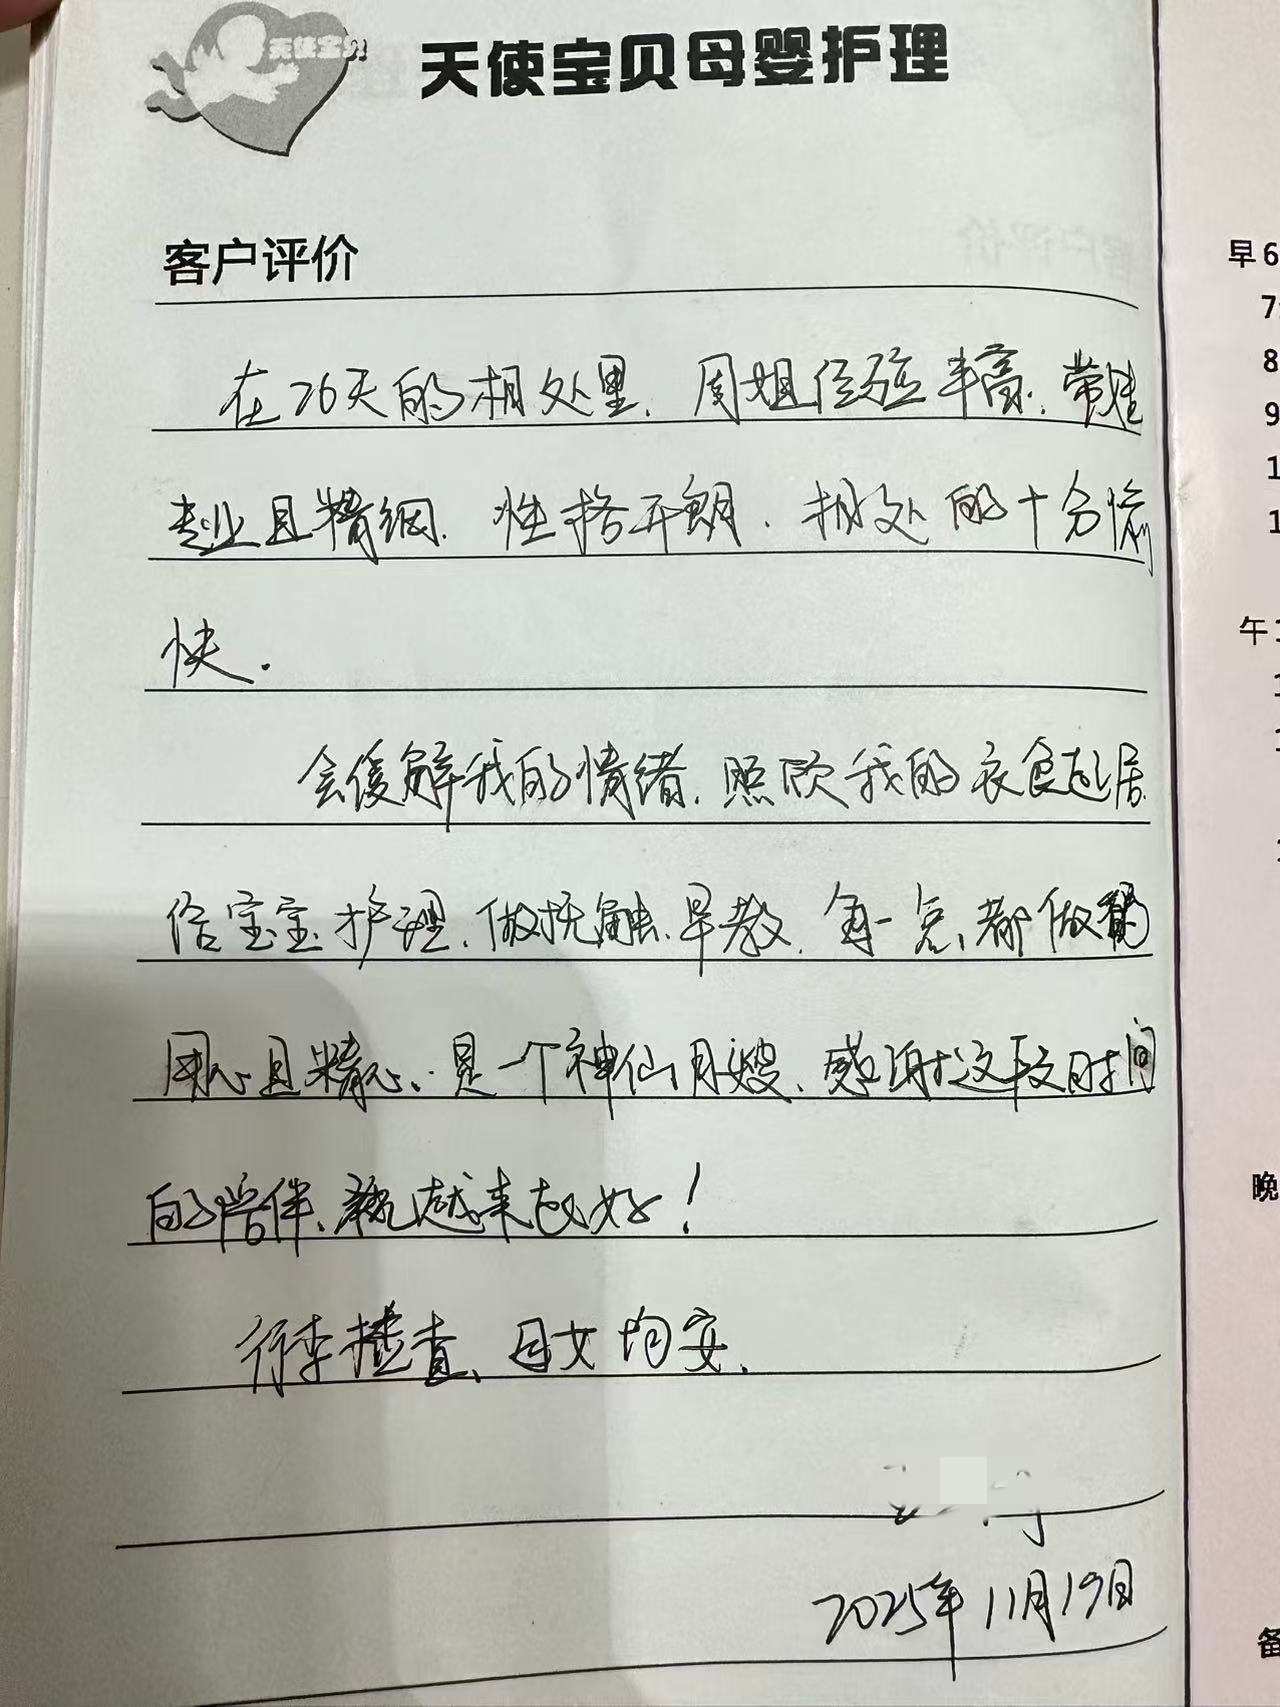 天使宝贝
天使宝贝母婴护理
客户评价
在26天的相处里、周姐经验丰富、带娃
专业且精细、性格开朗、相处的十分愉
快.
会缓解我的情绪、照顾我的衣食起居
给宝宝护理、做抚触、早教、每一点都做的
用心且精心、是一个神仙月嫂、感谢这段时间
的陪伴、祝越来越好！
行李检查、母女均安、
2025年11月19日
早6
7:
8
9
1
1
午1
1
1
1
晚
备